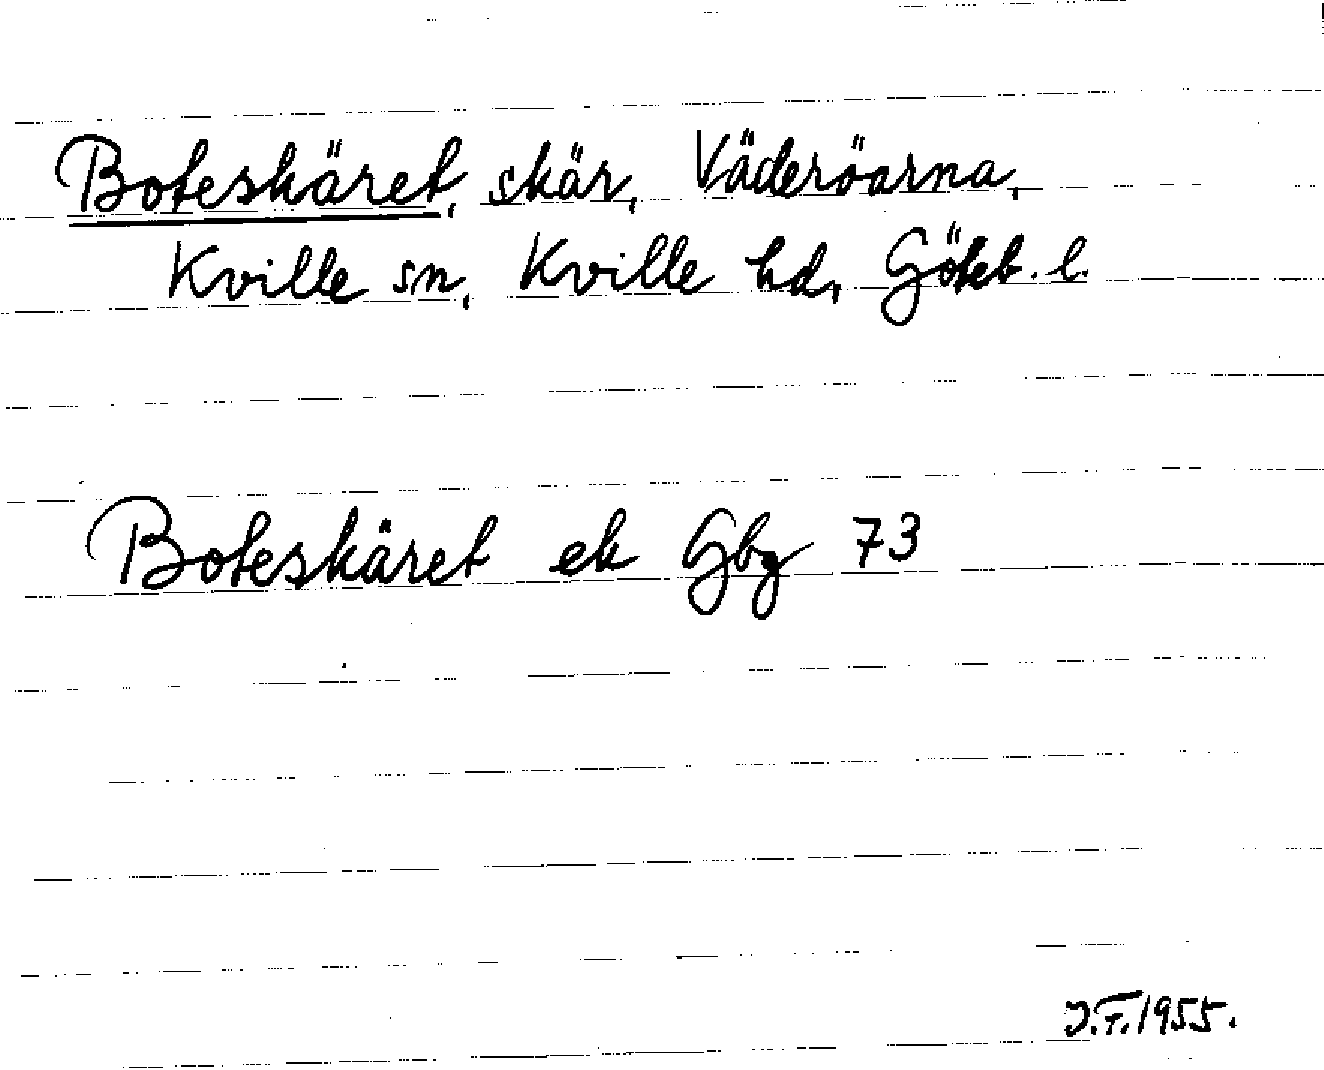 Boteskäret, skär, Väderöarna,
Kville sn, Kville hd, Göteb. l.
Boteskäret ek Gbg 73
J.F. 1955.